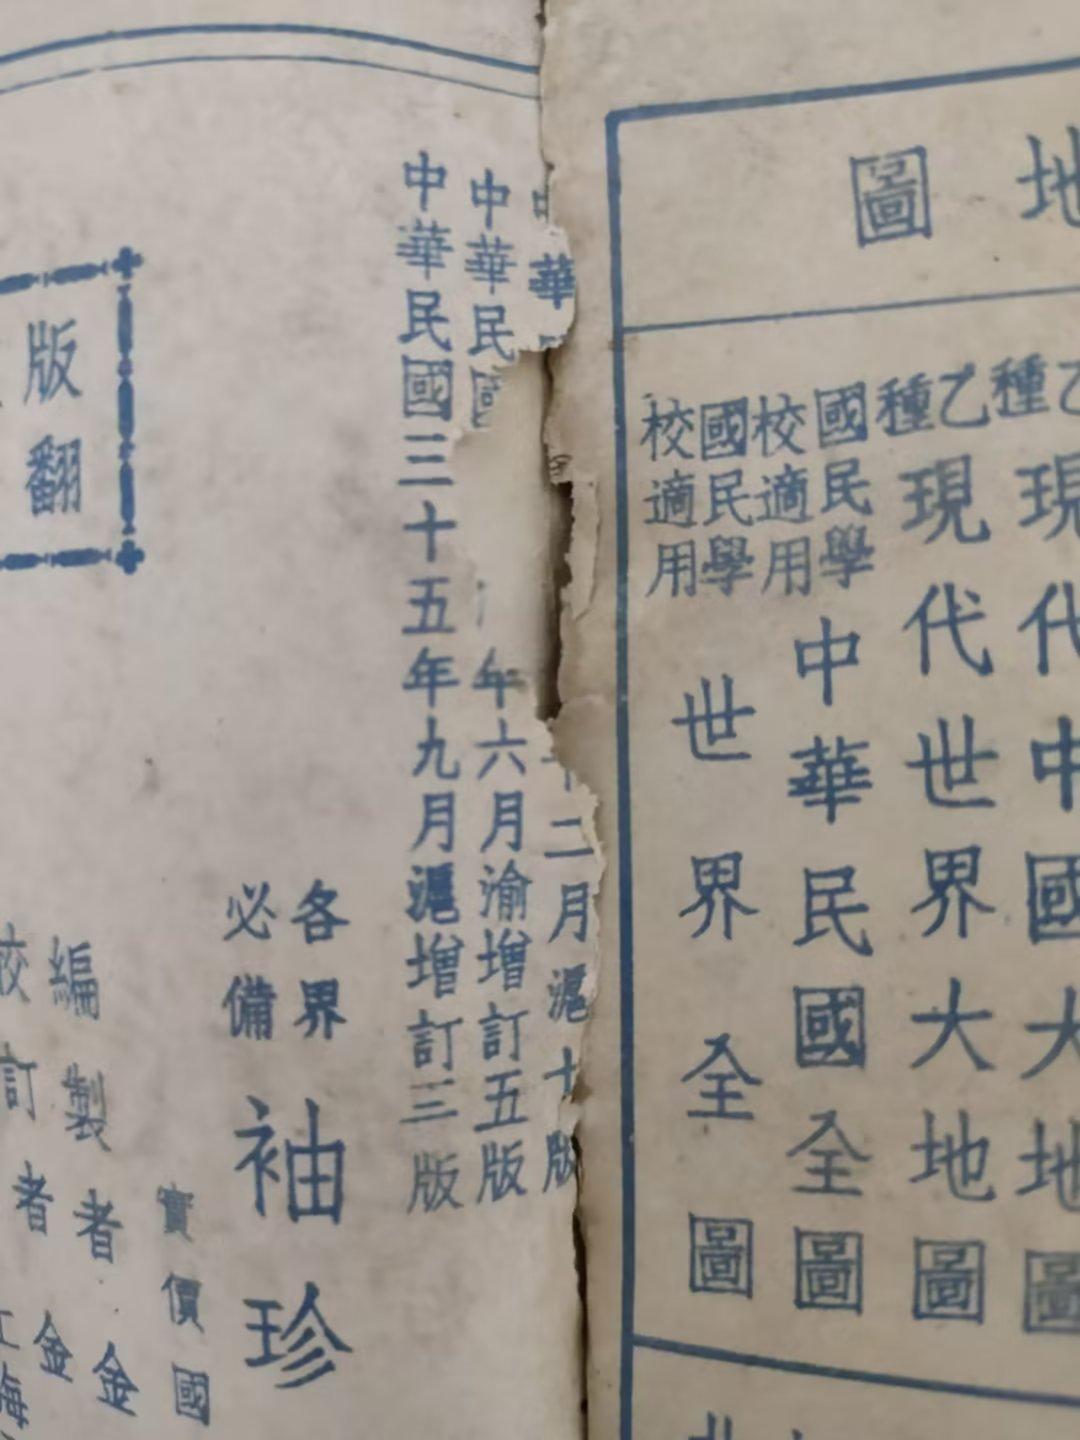 地圖
乙種現代中國大地圖
乙種現代世界大地圖
國民學校適用中華民國全圖
國民學校適用世界全圖
北
中華
二月滬十版
中華民國
年六月渝增訂五版
中華民國三十五年九月滬增訂三版
各界必備袖珍
實價國
編製者金
校訂者金
海
版翻